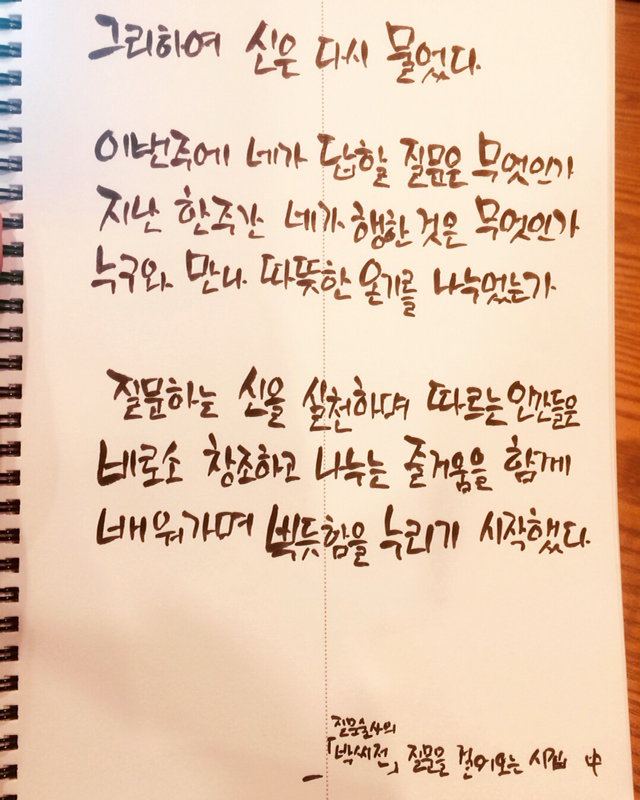 그리하여 신은 다시 물었다.
이번주에 네가 답할 질문은 무엇인가
지난 한주간 네가 행한 것은 무엇인가
누구와 만나 따뜻한 온기를 나누었는가
질문하는 신을 실천하며 따르는 인간들은
비로소 창조하고 나누는 즐거움을 함께
배워가며 뿌듯함을 누리기 시작했다.
질문술사의
「박씨전」 질문을 걸어오는 시집 中